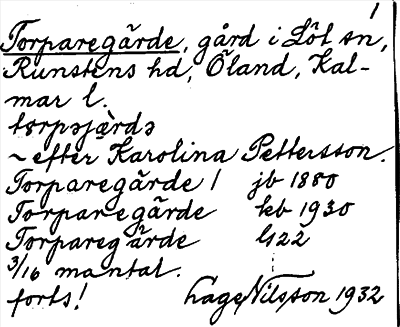 1
Torparegärde, gård i Löt sn,
Runstens hd, Öland, Kal-
mar l.
torpəjä̀rdə
~ efter Karolina Pettersson.
Torparegärde 1 jb 1880
Torparegärde kb 1930
Torparegärde
3/16 mantal.
forts! Lage Nilsson 1932